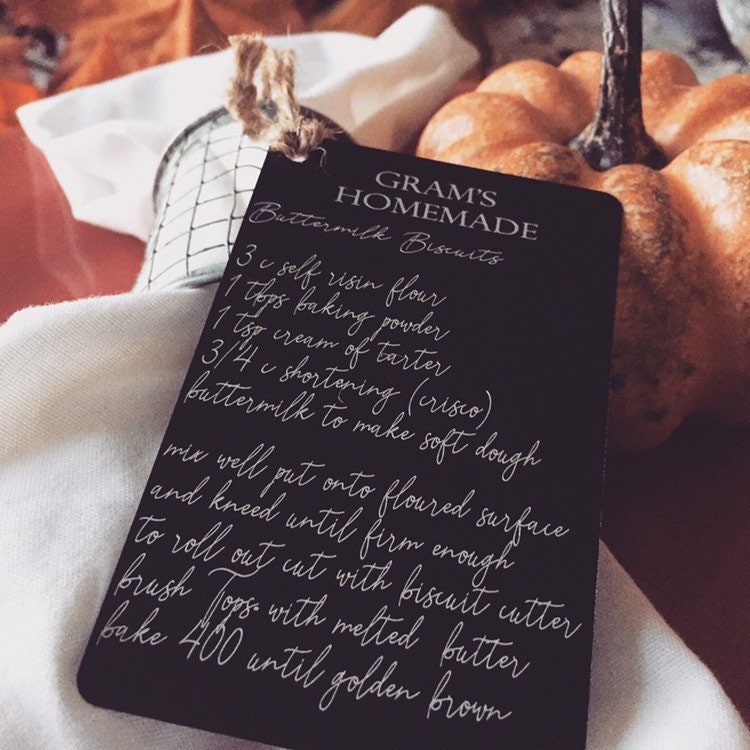 GRAM'S
HOMEMADE
Buttermilk Biscuits
3 c self risin flour
1 tbps baking powder
1 tsp cream of tarter
3/4 c shortening (crisco)
buttermilk to make soft dough
mix well put onto floured surface
and kneed until firm enough
to roll out cut with biscuit cutter
brush Tops. with melted butter
bake 400 until golden brown